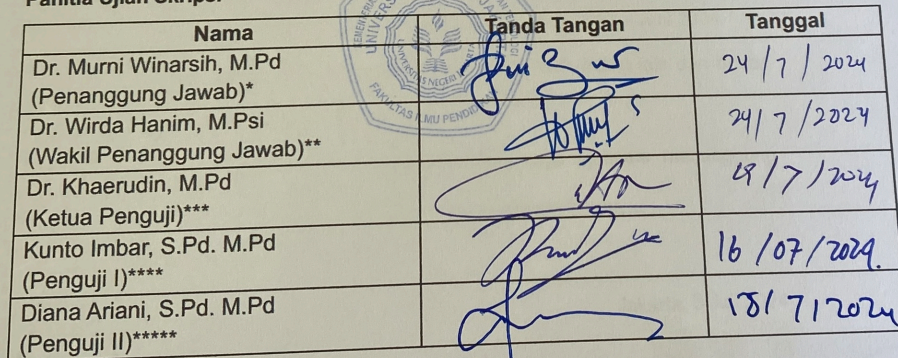 Panitia Ujian Skripsi
Nama Tanda Tangan Tanggal
Dr. Murni Winarsih, M.Pd
(Penanggung Jawab)* 24/7/2024
Dr. Wirda Hanim, M.Psi
(Wakil Penanggung Jawab)** 24/7/2024
Dr. Khaerudin, M.Pd
(Ketua Penguji)*** /7/2024
Kunto Imbar, S.Pd. M.Pd
(Penguji I)**** 16/07/2024.
Diana Ariani, S.Pd. M.Pd
(Penguji II)***** 18/7/2024
UNIVERSITAS NEGERI
FAKULTAS ILMU PENDIDIKAN